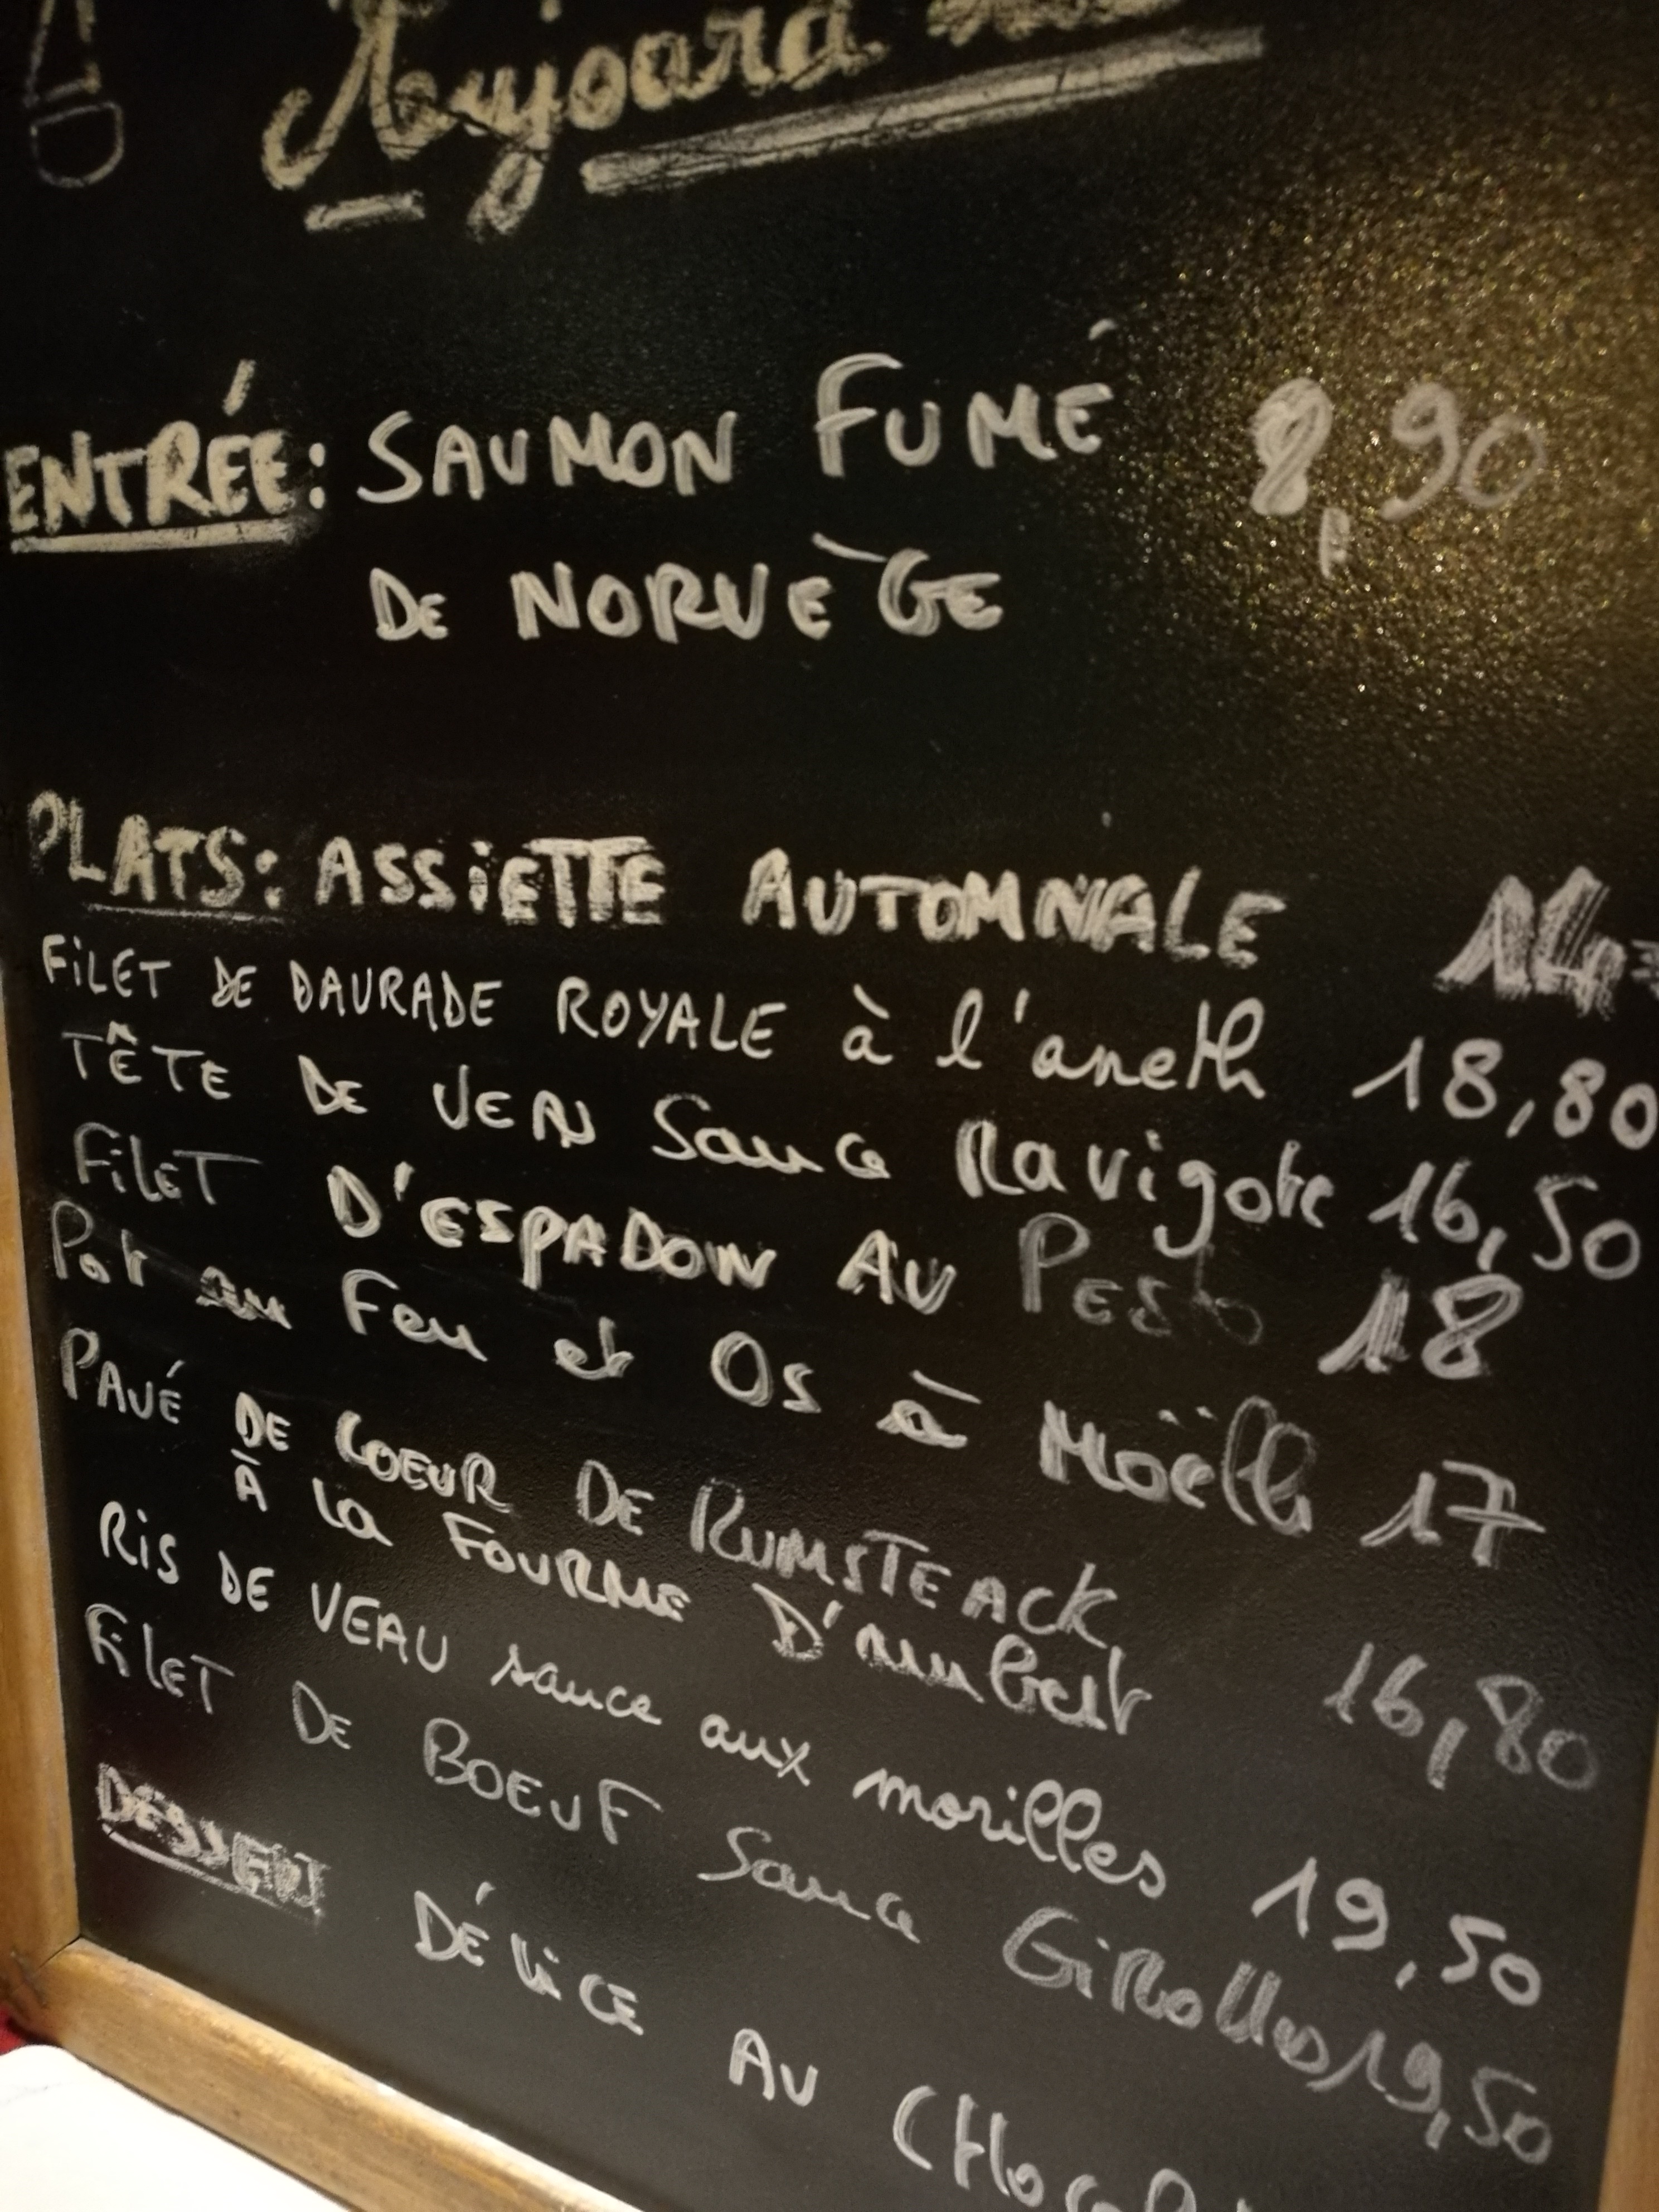 Aujourd'hui
ENTRÉE: SAUMON FUMÉ 8,90
DE NORVÈGE
PLATS: ASSIETTE AUTOMNALE 14
FILET DE DAURADE ROYALE à l'aneth 18,80
TÊTE DE VEAU Sauce Ravigote 16,50
FILET D'ESPADON AU PESto 18
Pot au Feu et Os à Moëlle 17
PAVÉ DE COEUR DE RUMSTEACK
À la FOURME D'ambert 16,80
RIS DE VEAU sauce aux morilles 19,50
FILET DE BOEUF Sauce GiRolles 19,50
DESSERT
DÉLICE AU CHocol